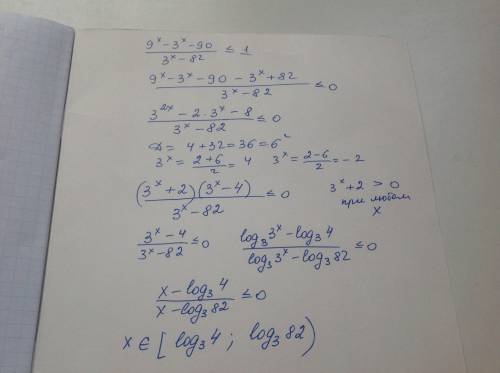 (9^x - 3^x - 90)/(3^x - 82) ≤ 1
(9^x - 3^x - 90 - 3^x + 82)/(3^x - 82) ≤ 0
(3^{2x} - 2·3^x - 8)/(3^x - 82) ≤ 0
D = 4 + 32 = 36 = 6^2
3^x = (2+6)/2 = 4 3^x = (2-6)/2 = -2
(3^x + 2)(3^x - 4)/(3^x - 82) ≤ 0 3^x + 2 > 0
при любом
x
(3^x - 4)/(3^x - 82) ≤ 0 (log_3 3^x - log_3 4)/(log_3 3^x - log_3 82) ≤ 0
(x - log_3 4)/(x - log_3 82) ≤ 0
x ∈ [log_3 4 ; log_3 82)